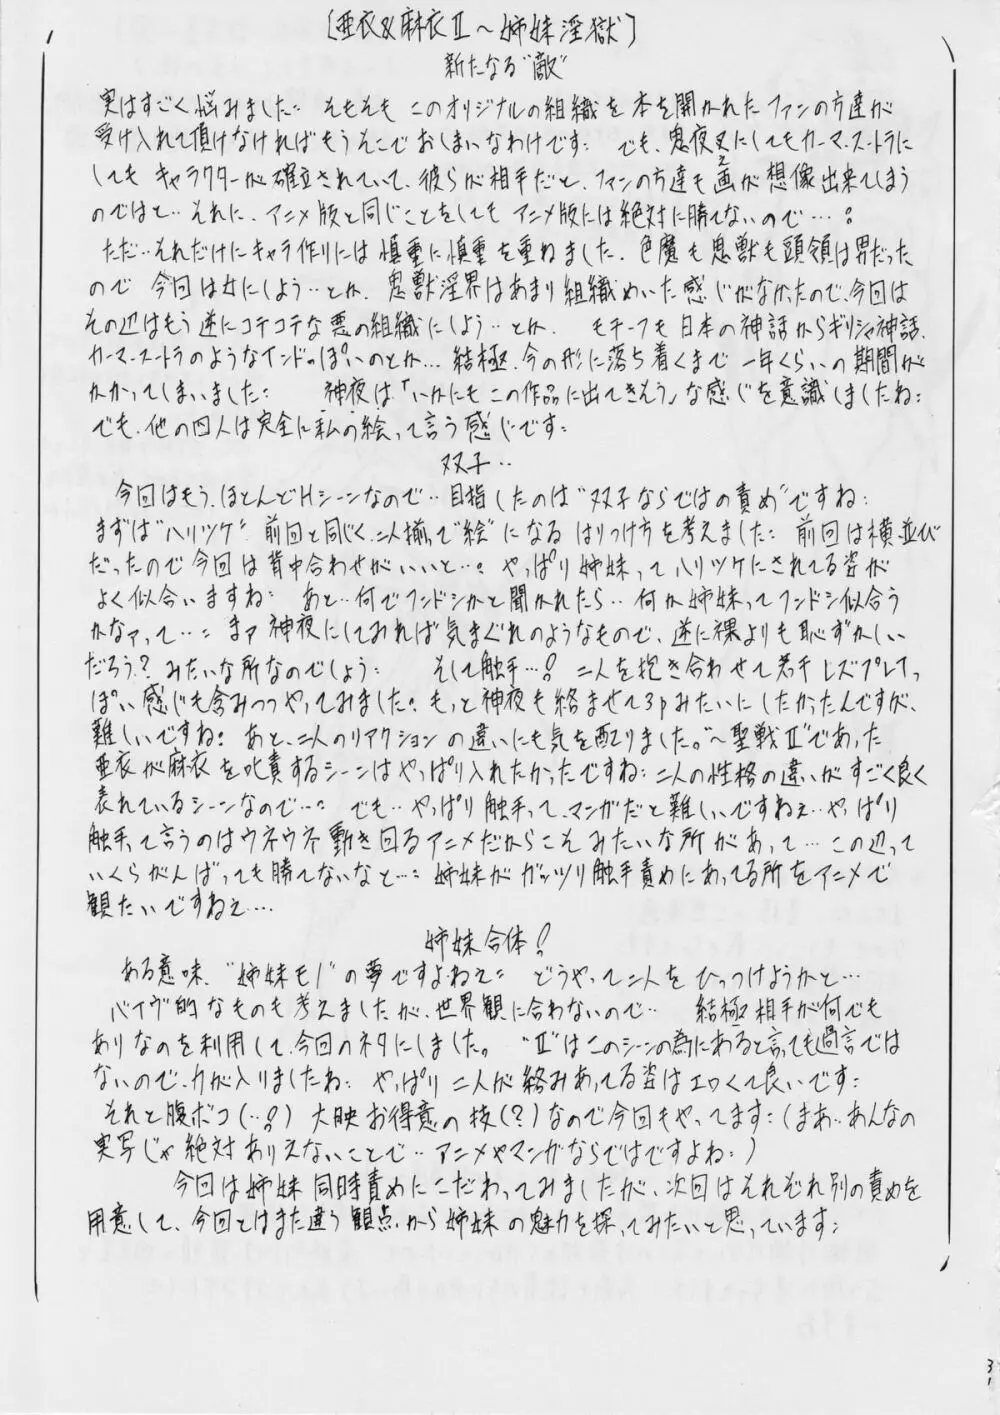 [亜衣&麻衣Ⅱ～姉妹淫獄]
新たなる"敵"
実はすごく悩みました: そもそも このオリジナルの組織を 本を開かれた ファンの方達が
受け入れて頂けなければもうそこで おしまいなわけです: でも、鬼夜叉にしてもカーマ・スートラに
しても キャラクターが確立されていて、彼らが相手だと、ファンの方達も画が想像出来てしまう
え
のではと‥それに、アニメ版と同じことをしても アニメ版には絶対に勝てないので…:
ただ‥それだけにキャラ作りには 慎重に慎重を重ねました、色魔も鬼獣も頭領は男だった
ので 今回は女にしよう‥とか、鬼獣淫界はあまり組織めいた感じがなかったので、今回は
その辺はもう逆にコテコテな悪の組織にしよう‥とか、 モチーフも日本の神話からギリシャ神話、
カーマ・スートラのようなインドっぽいのとか… 結極、今の形に落ち着くまで 一年くらいの期間が
かかってしまいました: 神夜は「いかにもこの作品に出てきそう」な感じを意識しましたね:
でも、他の四人は完全に私の絵って言う感じです:
双子‥
今回はもう、ほとんどHシーンなので‥目指したのは"双子ならではの責め"ですね:
まずは"ハリツケ" 前回と同じく、二人揃って"絵"になる はりつけ方を考えました: 前回は横並び
だったので今回は背中合わせがいいと‥: やっぱり姉妹ってハリツケにされてる姿が
よく似合いますね: あと‥何でフンドシかと聞かれたら‥何か姉妹ってフンドシ似合う
かなァって‥: まァ神夜にしてみれば気まぐれのようなもので、逆に裸よりも恥ずかしい
だろう? みたいな所なのでしょう: そして触手…! 二人を抱き合わせて若干レズプレイっ
ぽい感じも含みつつやってみました: もっと神夜も絡ませて3pみたいにしたかったんですが、
難しいですね: あと、二人のリアクションの違いにも気を配りました。"～聖戦Ⅱ"であった
亜衣が麻衣を叱責するシーンはやっぱり入れたかったですね: 二人の性格の違いがすごく良く
表れているシーンなので…: でも‥やっぱり触手って、マンガだと難しいですねぇ…やっぱり
触手って言うのはウネウネ動き回るアニメだからこそみたいな所があって… この辺って
いくらがんばっても勝てないなと…: 姉妹がガッツリ触手責めにあってる所をアニメで
観たいですねぇ…
姉妹合体!
ある意味、"姉妹モノ"の夢ですよねぇ: どうやって二人をひっつけようかと…
バイヴ的なものも考えましたが、世界観に合わないので‥ 結極相手が何でも
ありなのを利用して、今回のネタにしました。 "Ⅱ"はこのシーンの為にあると言っても過言では
ないので、力が入りましたね: やっぱり二人が絡みあってる姿はエロくて良いです:
それと腹ボコ(‥!?) 大映お得意の技(?)なので今回もやってます: (まあ‥あんなの
実写じゃ絶対ありえないことで‥アニメやマンガならではですよね:)
今回は姉妹同時責めにこだわってみましたが、次回はそれぞれ別の責めを
用意して、今回とはまた違う観点から姉妹の魅力を探ってみたいと思っています:
31